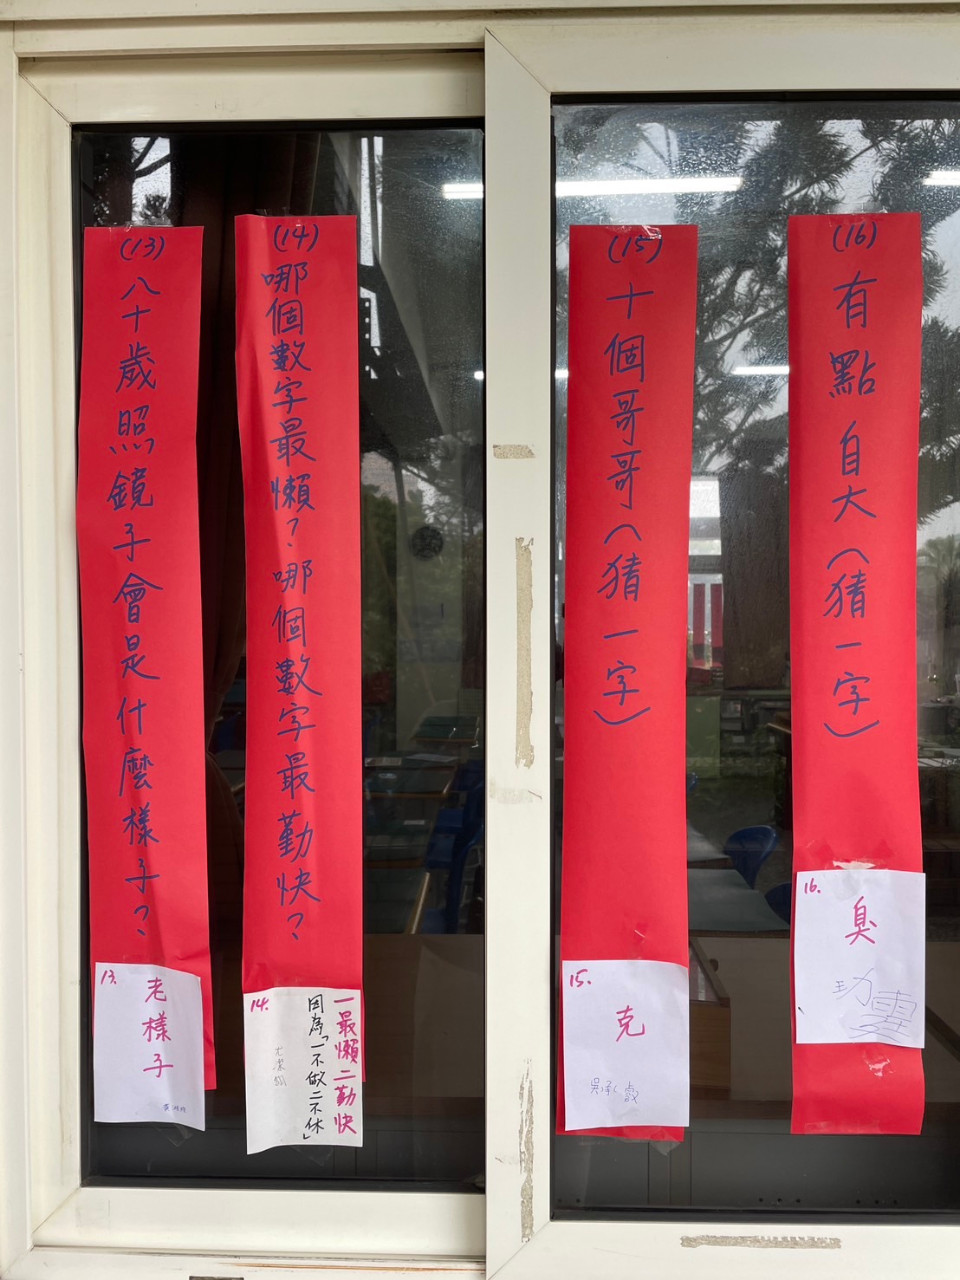 (13)八十歲照鏡子會是什麼樣子?
13.
老樣子
(14)哪個數字最懶?哪個數字最勤快?
14.
一最懶二勤快
因為「一不做二不休」
(15)十個哥哥(猜一字)
15.
克
吳承叡
(16)有點自大(猜一字)
16.
臭